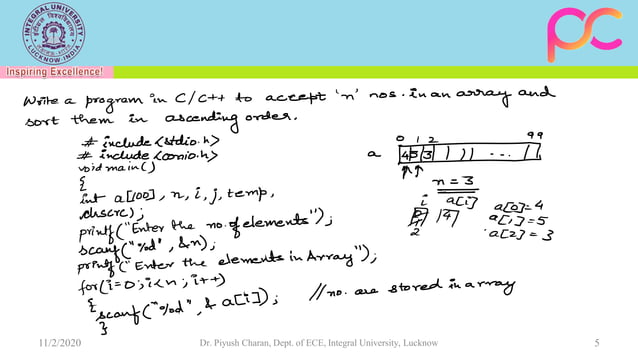 INTEGRAL UNIVERSITY
LUCKNOW-INDIA
Inspiring Excellence!
pc
Write a program in C/C++ to accept 'n' nos. in an array and
sort them in ascending order.
# include <stdio.h>
# include <conio.h>
void main()
{
int a[100], n, i, j, temp,
clrscr();
printf("Enter the no. of elements");
scanf("%d", &n);
printf("Enter the elements in Array");
for(i=0; i<n; i++)
{
scanf("%d", & a[i]); // no. are stored in array
}
0 1 2 99
a 4 5 3 ...
n = 3
i a[i]
4
2
a[0]=4
a[1]=5
a[2]=3
11/2/2020 Dr. Piyush Charan, Dept. of ECE, Integral University, Lucknow 5